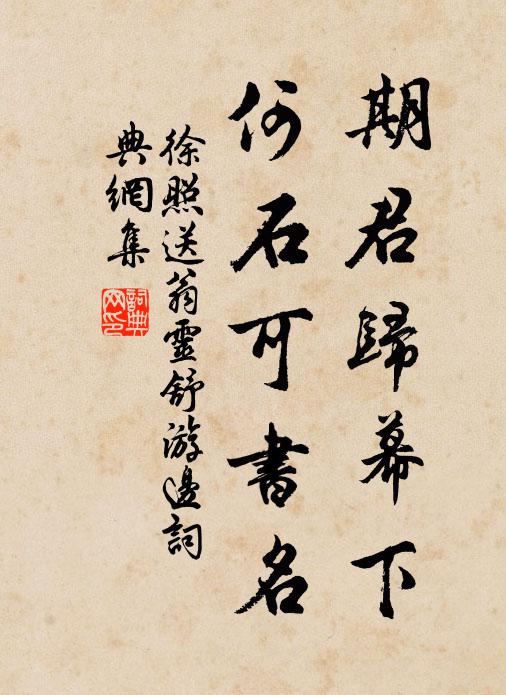 期君歸幕下
何石可書名
徐照送翁靈舒游邊詞
典網集
詞典網印